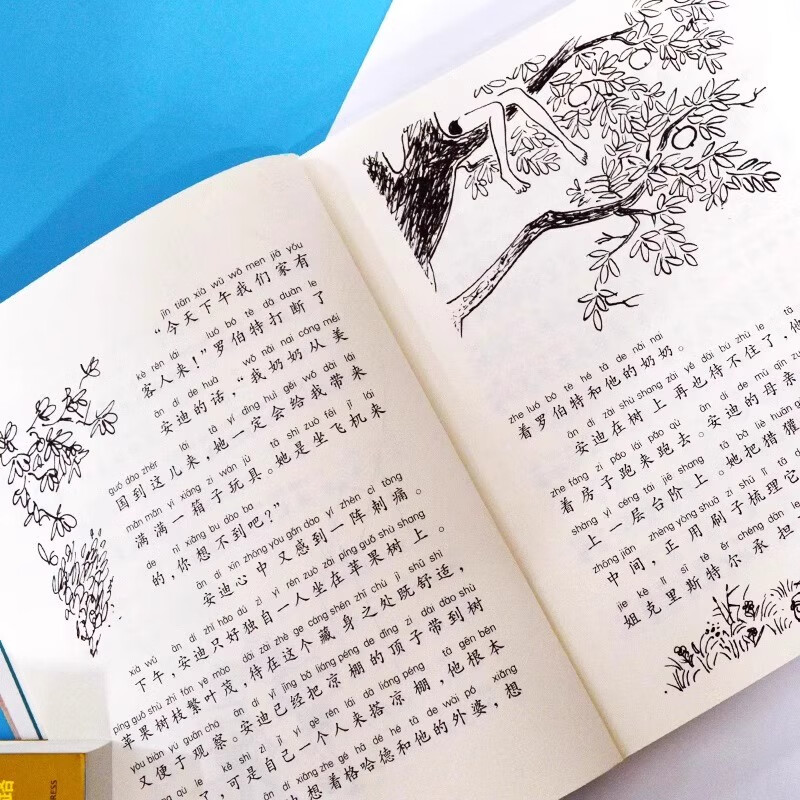 jīn tiān xià wǔ wǒ men jiā yǒu
“今天下午我们家有
kè rén lái luó bó tè dǎ duàn le
客人来！”罗伯特打断了
ān dí de huà wǒ nǎi nai cóng měi
安迪的话，“我奶奶从美
guó dào zhèr lái tā yí dìng huì gěi wǒ dài lái
国到这儿来，她一定会给我带来
mǎn mǎn yì xiāng zi wán jù tā shì zuò fēi jī lái
满满一箱子玩具。她是坐飞机来
de nǐ xiǎng bu dào ba
的，你想不到吧？”
ān dí xīn zhōng yòu gǎn dào yí zhèn cì tòng
安迪心中又感到一阵刺痛。
xià wǔ ān dí zhǐ hǎo dú zì yì rén zuò zài píng guǒ shù shang
下午，安迪只好独自一人坐在苹果树上。
píng guǒ shù zhī fán yè mào dāi zài zhè ge cáng shēn zhī chù jì shū shì
苹果树枝繁叶茂，待在这个藏身之处既舒适，
yòu biàn yú guān chá ān dí yǐ jīng bǎ liáng péng de dǐng zi dài dào shù
又便于观察。安迪已经把凉棚的顶子带到树
qù le kě shì zì jǐ yí gè rén lái dā liáng péng tā gēn běn
了，可是自己一个人来搭凉棚，他根本
ān dí xiǎng zhe gé hā dé hé tā de wài pó xiǎng
想着格哈德和他的外婆，想
zhe luó bó tè hé tā de nǎi nai
着罗伯特和他的奶奶。
ān dí zài shù shang zài yě dāi bú zhù le tā
安迪在树上再也待不住了，他
zhe fáng zi pǎo lái pǎo qù ān dí de mǔ qīn
着房子跑来跑去。安迪的母亲
shàng yì céng tái jiē shang tā bǎ liè huān
上一层台阶上。她把猎獾
zhōng jiān zhèng yòng shuā zi shū lǐ tā
中间，正用刷子梳理它
jiě kè lǐ sī tè ěr chéng dān
姐克里斯特尔承担